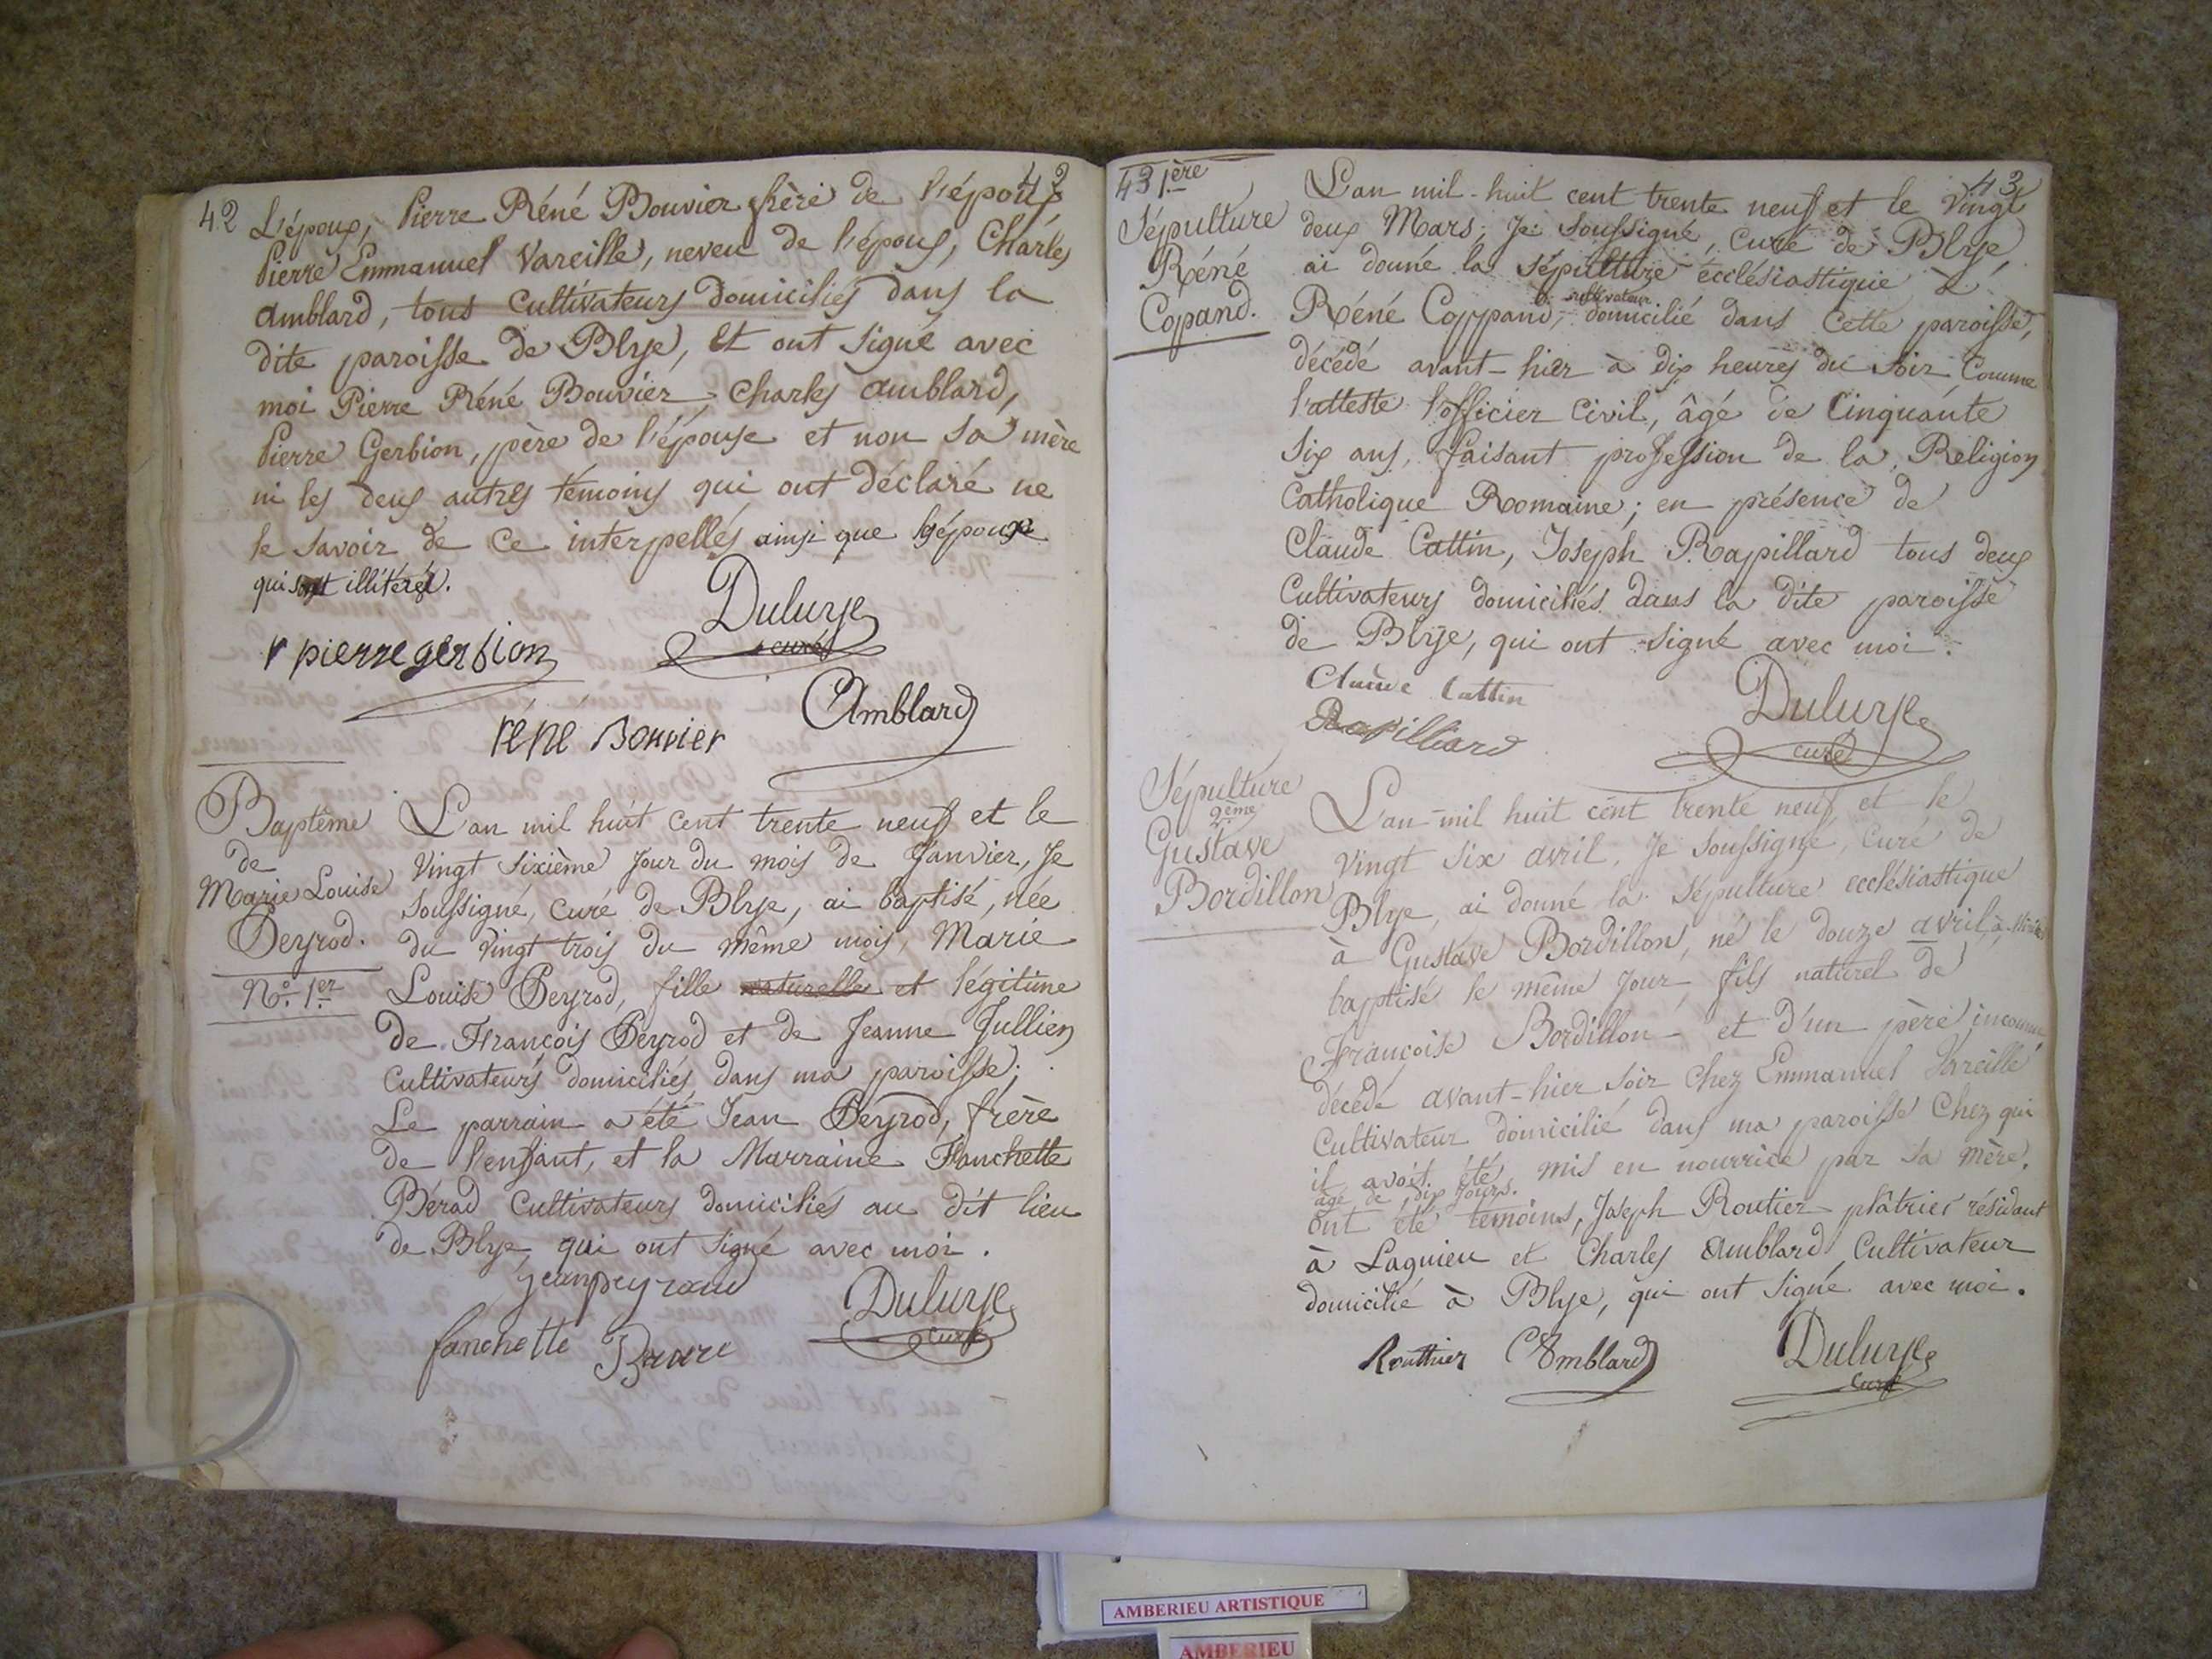 42
42
L'époux, Pierre Réné Bouvier frère de l'époux
Pierre Emmanuel Vareille, neveu de l'époux, Charles
Amblard, tous Cultivateurs domiciliés dans la
dite paroisse de Blye, Et ont signé avec
moi Pierre Réné Bouvier, Charles Amblard,
Pierre Gerbion, père de l'épouse et non sa mère
ni les deux autres témoins qui ont déclaré ne
le savoir de Ce interpellés ainsi que
qui sont illitérés.
pierre gerbion
Dulurye
curé
Amblard
réné Bouvier
Baptême
de
Marie Louise
Peyrod.
No. 1er
L'an mil huit Cent trente neuf et le
Vingt sixième Jour du mois de Janvier, Je
Soussigné, Curé de Blye, ai baptisé, née
du Vingt trois du même mois, Marie
Louise Peyrod, fille naturelle et légitime
de François Peyrod et de Jeanne Jullien
Cultivateurs domiciliés dans ma paroisse;
Le parrain a été Jean Peyrod, frère
de l'enfant, et la Marraine Fanchette
Bérod Cultivateurs domiciliés au dit lieu
de Blye, qui ont signé avec moi.
jean peyraud
Dulurye
curé
fanchette
43
43
1ère
Sépulture
Réné
Copand.
L'an mil-huit cent trente neuf et le Vingt
deux Mars; Je soussigné, Curé de Blye,
ai donné la sépulture écclésiastique à
cultivateur
Réné Coppand, domicilié dans Cette paroisse,
décédé avant-hier à dix heures du soir Comme
l'atteste l'officier Civil, âgé de Cinquante
six ans, faisant profession de la Religion
Catholique Romaine; en présence de
Claude Cattin, Joseph Rapillard tous deux
Cultivateurs domiciliés dans la dite paroisse
de Blye, qui ont signé avec moi.
Claude Cattin
Rapilliard
Dulurye
curé
Sépulture
2ème
Gustave
Bordillon
L'an-mil huit cent trente neuf et le
Vingt six avril, Je soussigné, Curé de
Blye, ai donné la sépulture ecclésiastique
à Gustave Bordillon, né le douze avril, à
baptisé le même Jour, fils naturel de
Françoise Bordillon et d'un père inconnu
décédé avant-hier soir Chez Emmanuel Vareille
Cultivateur domicilié dans ma paroisse Chez qui
il avoit été mis en nourrice par sa mère.
âgé de dix Jours.
Ont été témoins, Joseph Routier plâtrier résidant
à Lagnieu et Charles Amblard Cultivateur
domicilié à Blye, qui ont signé avec moi.
Routhier
Amblard
Dulurye
Curé
AMBERIEU ARTISTIQUE
AMBERIEU